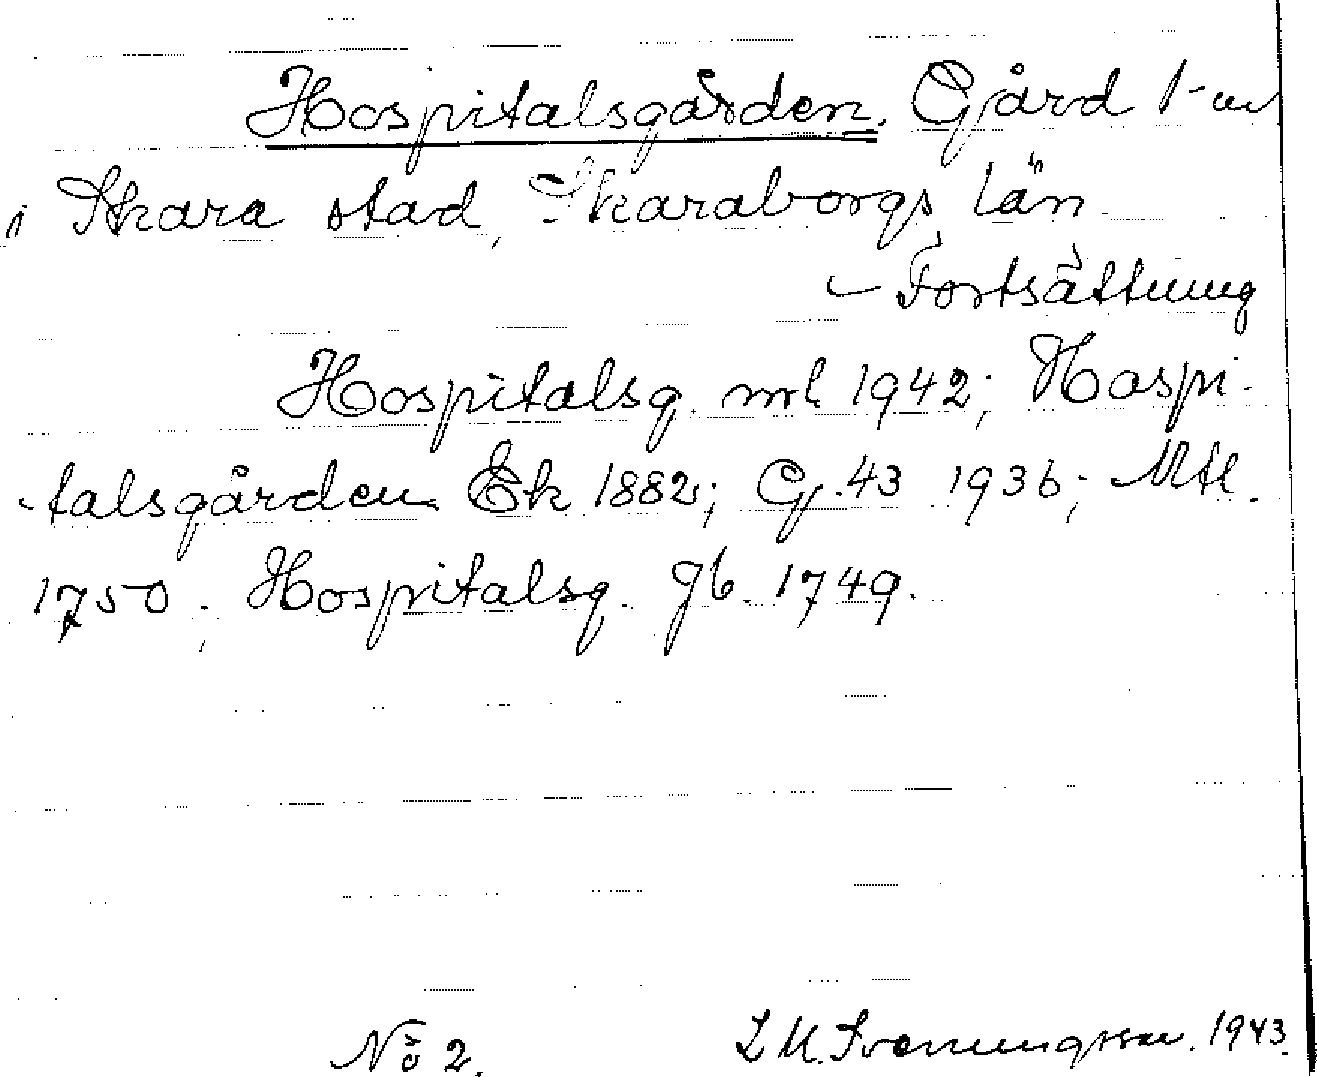 Hospitalsgården. Gård 1-
i Skara stad, Skaraborgs län
- Fortsättning
Hospitalsg. ml 1942; Hospi-
talsgården Ek 1882; G.43 1936; Mtl.
1750; Hospitalsg. Jb 1749.
No 2. L M. Svenningsson. 1943.